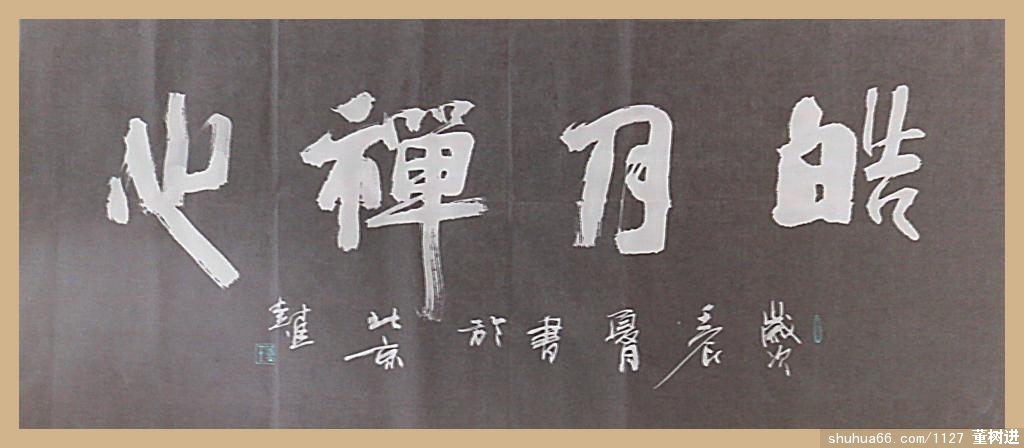 皓月禪心
歲次壬辰夏月書於北京
shuhua66.com/1127 董树进